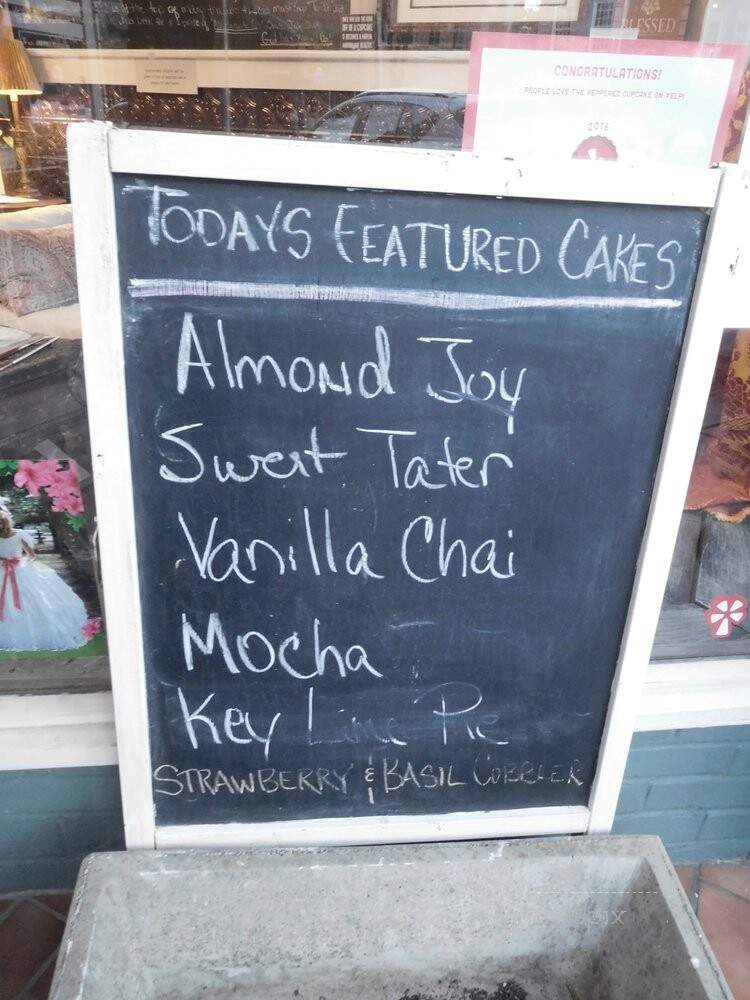 BLESSED
CONGRATULATIONS!
PEOPLE LOVE THE PEPPERED CUPCAKE ON YELP!
2016
TODAYS FEATURED CAKES
Almond Joy
Sweet Tater
Vanilla Chai
Mocha
Key Lime Pie
STRAWBERRY & BASIL COBBLER